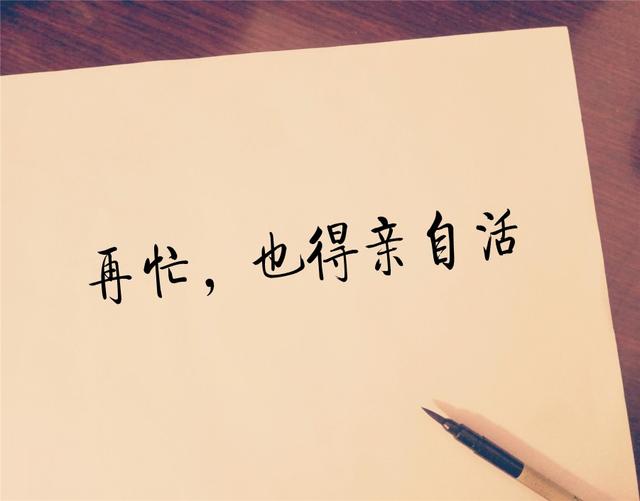 再忙，也得亲自活